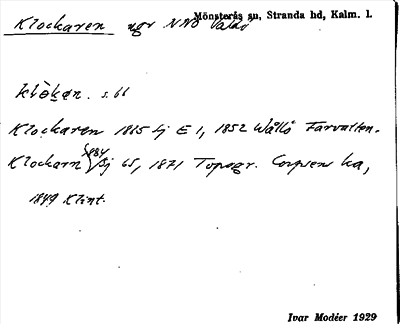 Mönsterås sn, Stranda hd, Kalm. l.
Klockaren ugr NNO Valdö
klòkạn. s. 66
Klockaren 1815 Sj E 1, 1852 Wållö Farvatten.
Klockarn 1784 Sj 65, 1871 Topogr. Corpsen ka,
1849 Klint.
Ivar Modéer 1929